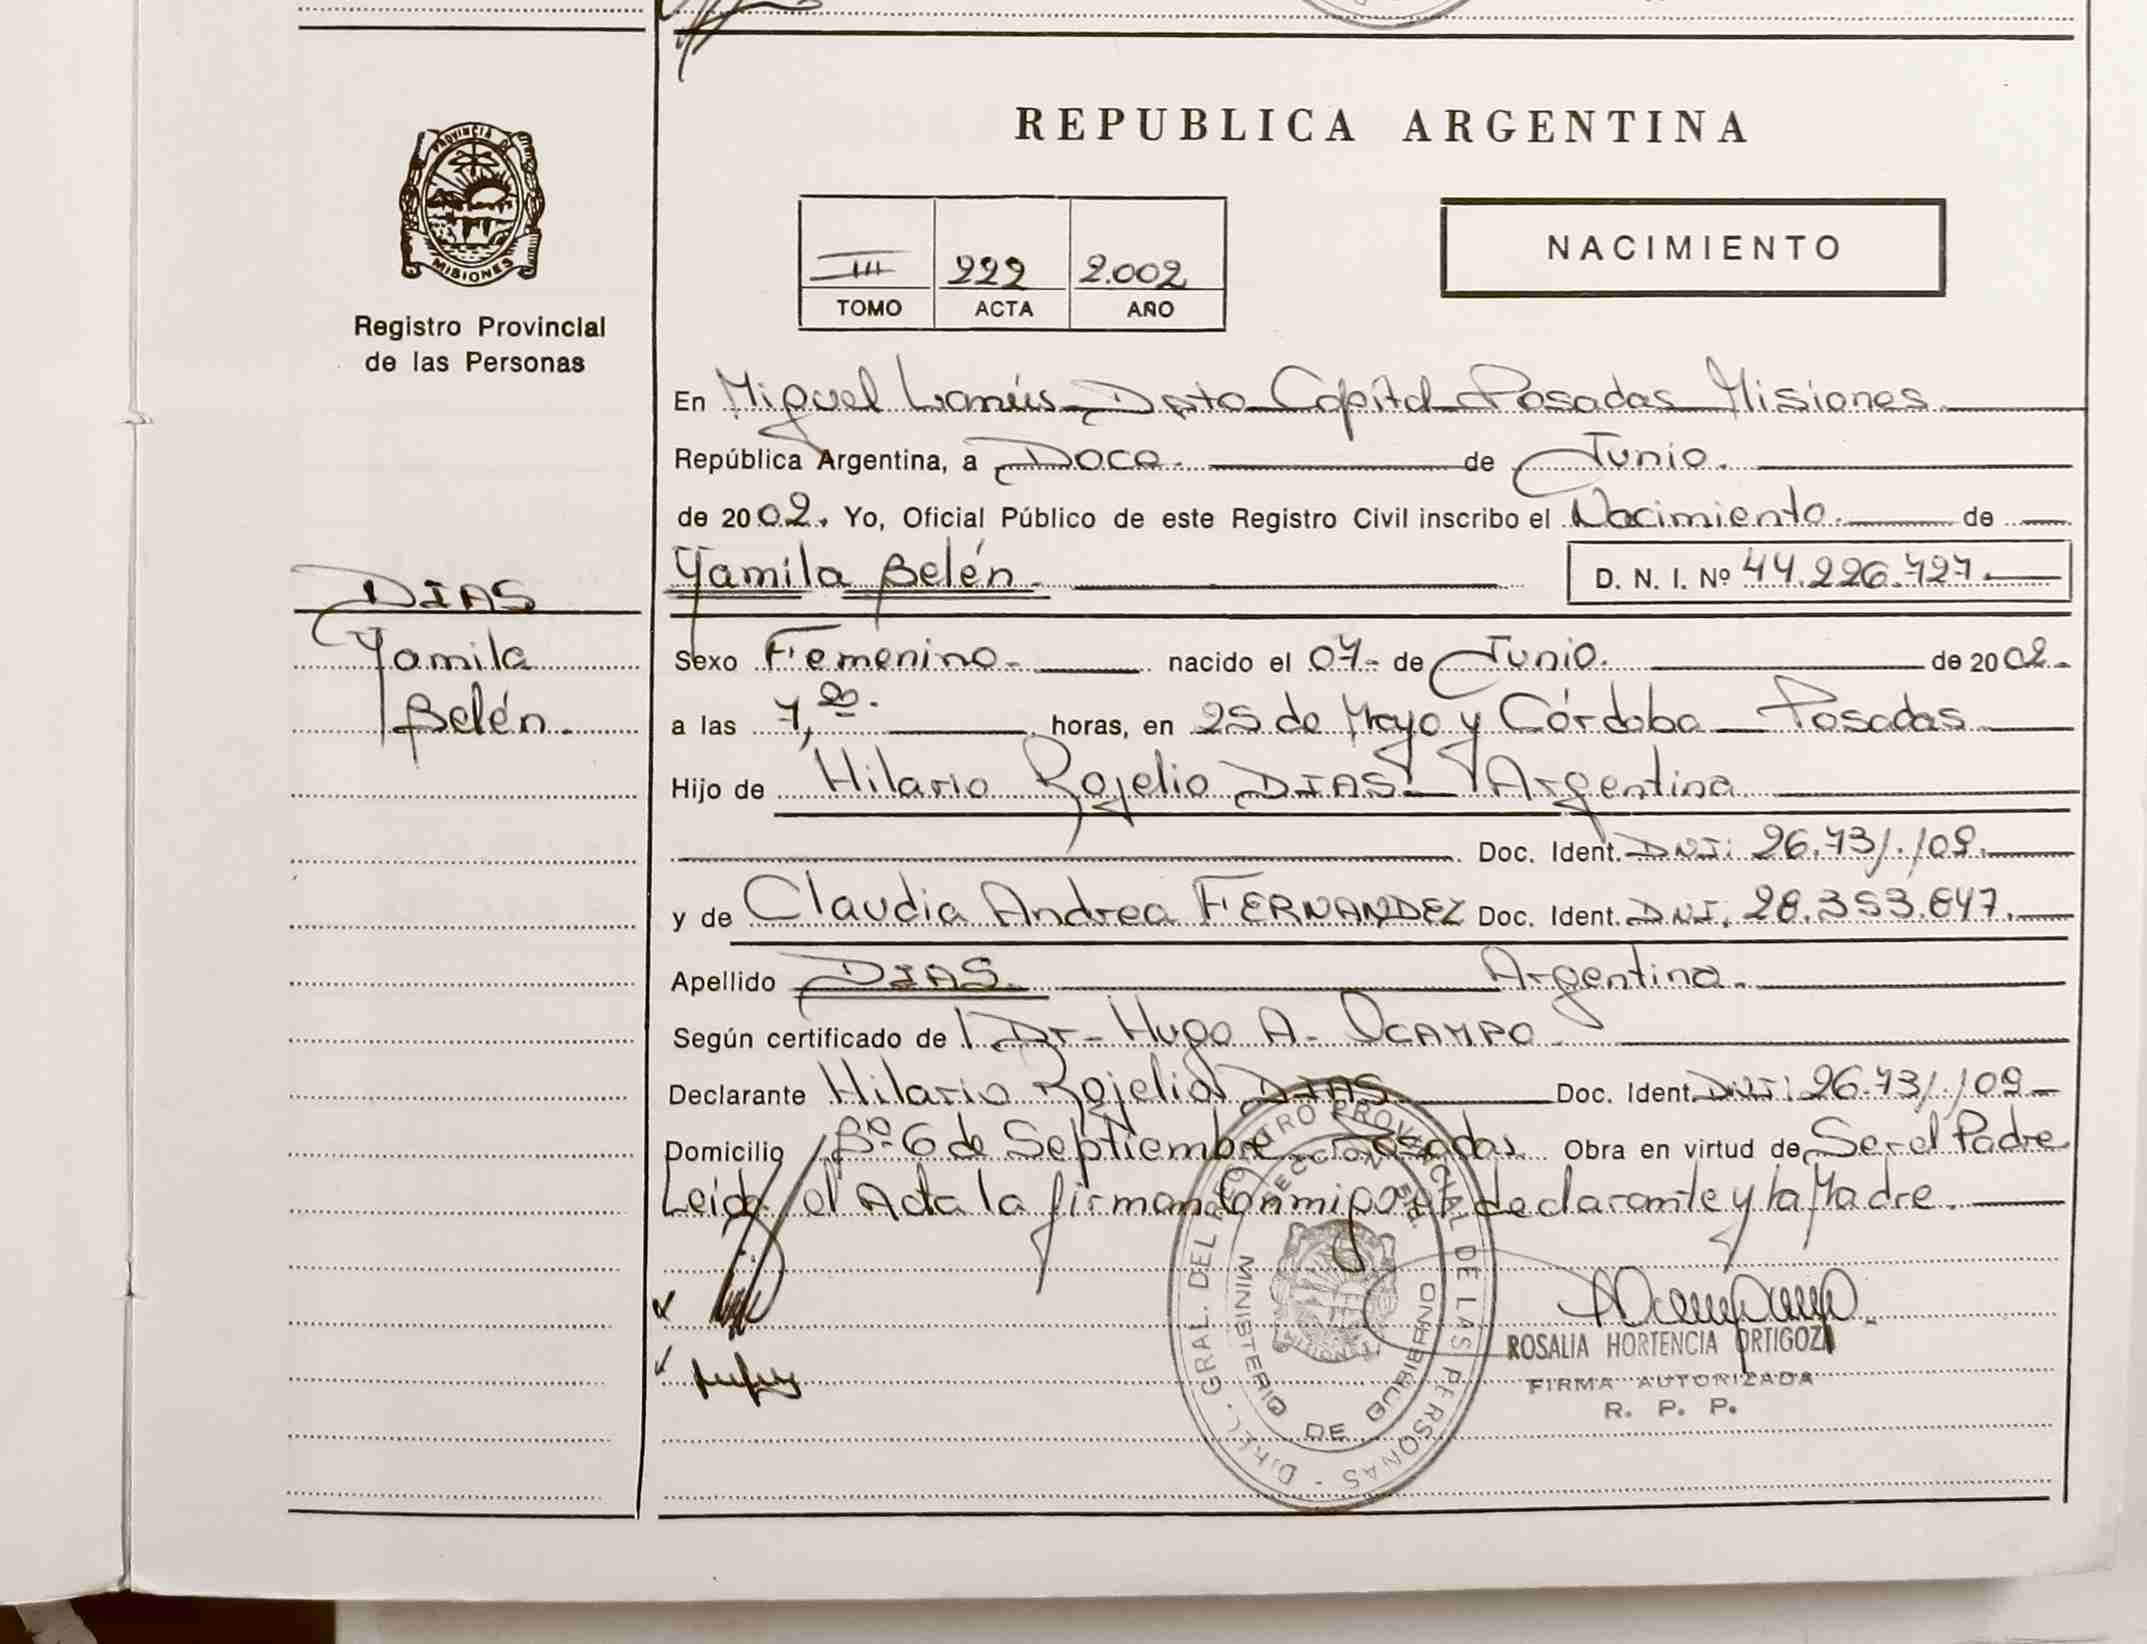 PROVINCIA DE
MISIONES
Registro Provincial
de las Personas
DIAS
Yamila
Belén.
REPUBLICA ARGENTINA
III 222 2.002
TOMO ACTA AÑO
NACIMIENTO
En Miguel Lanús - Dpto Capital - Posadas Misiones.
República Argentina, a Doce. de Junio.
de 2002. Yo, Oficial Público de este Registro Civil inscribo el Nacimiento. de
Yamila Belén. D. N. I. Nº 44.226.727.
Sexo Femenino - nacido el 07 - de Junio. de 2002 -
a las 7,20. horas, en 25 de Mayo y Córdoba - Posadas
Hijo de Hilario Rojelio DIAS - Argentina
Doc. Ident. DNI: 26.731.109.
y de Claudia Andrea FERNANDEZ Doc. Ident. DNI. 28.353.647.
Apellido DIAS. Argentina.
Según certificado de Dr - Hugo A - OCAMPO
Declarante Hilario Rojelio DIAS. Doc. Ident. DNI: 26.731.109 -
Domicilio Bº 6 de Septiembre - Posadas Obra en virtud de Ser el Padre
Leida el Acta la firman Conmigo el declarante y la Madre.
DIREC. GRAL. DEL REGISTRO PROVINCIAL DE LAS PERSONAS -
MINISTERIO DE GOBIERNO
ROSALIA HORTENCIA ORTIGOZA
FIRMA AUTORIZADA
R. P. P.